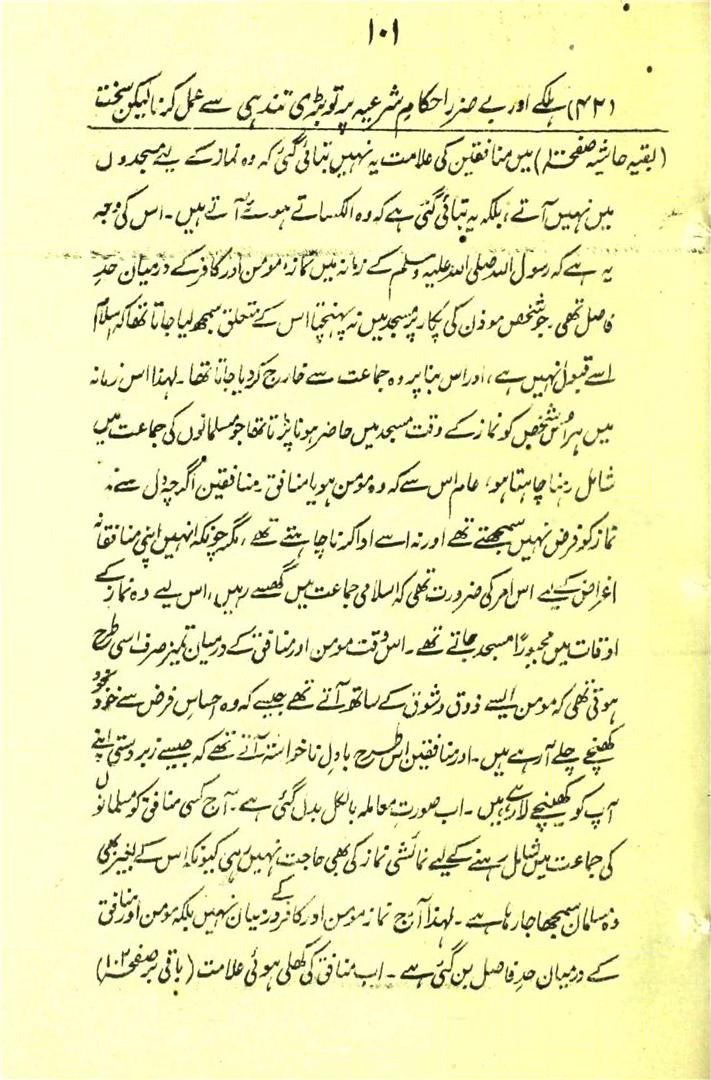 ۱۰۱
(۴۲) ہلکے اور بے ضرر احکامِ شرعیہ پر تو بڑی تندہی سے عمل کرنا لیکن سخت
(بقیہ حاشیہ صفحہ) میں منافقین کی علامت یہ نہیں بتائی گئی کہ وہ نماز کے لیے مسجدوں
میں نہیں آتے، بلکہ یہ بتائی گئی ہے کہ وہ الکساتے ہوئے آتے ہیں۔ اس کی وجہ
یہ ہے کہ رسول اللہ صلی اللہ علیہ وسلم کے زمانہ میں نماز، مومن اور کافر کے درمیان حدِ
فاصل تھی۔ جو شخص موذن کی پکار پر مسجد میں نہ پہنچتا اس کے متعلق سمجھ لیا جاتا تھا کہ اسلام
اسے قبول نہیں ہے، اور اس بنا پر وہ جماعت سے خارج کر دیا جاتا تھا۔ لہذا اس زمانہ
میں ہر اس شخص کو نماز کے وقت مسجد میں حاضر ہونا پڑتا تھا جو مسلمانوں کی جماعت میں
شامل رہنا چاہتا ہو، عام اس سے کہ وہ مومن ہو یا منافق۔ منافقین اگرچہ دل سے نہ
نماز کو فرض نہیں سمجھتے تھے اور نہ اسے ادا کرنا چاہتے تھے، مگر چونکہ انہیں اپنی منافقانہ
اغراض کے لیے اس امر کی ضرورت تھی کہ اسلامی جماعت میں گھسے رہیں، اس لیے وہ نماز کے
اوقات میں مجبوراً مسجد جاتے تھے۔ اس وقت مومن اور منافق کے درمیان تمیز صرف اسی طرح
ہوتی تھی کہ مومن ایسے ذوق و شوق کے ساتھ آتے تھے جیسے کہ وہ احساسِ فرض سے خود بخود
کھنچے چلے آ رہے ہیں۔ اور منافقین اس طرح بادلِ ناخواستہ آتے تھے کہ جیسے زبردستی اپنے
آپ کو کھینچے لا رہے ہیں۔ اب صورتِ معاملہ بالکل بدل گئی ہے۔ آج کسی منافق کو مسلمانوں
کی جماعت میں شامل رہنے کے لیے نمائشی نماز کی بھی حاجت نہیں رہی کیونکہ اس کے بغیر بھی
وہ مسلمان سمجھا جا رہا ہے۔ لہذا آج نماز مومن اور کافر کے درمیان نہیں بلکہ مومن اور منافق
کے درمیان حدِ فاصل بن گئی ہے۔ اب منافق کی کھلی ہوئی علامت (باقی بر صفحہ ۱۰۲)